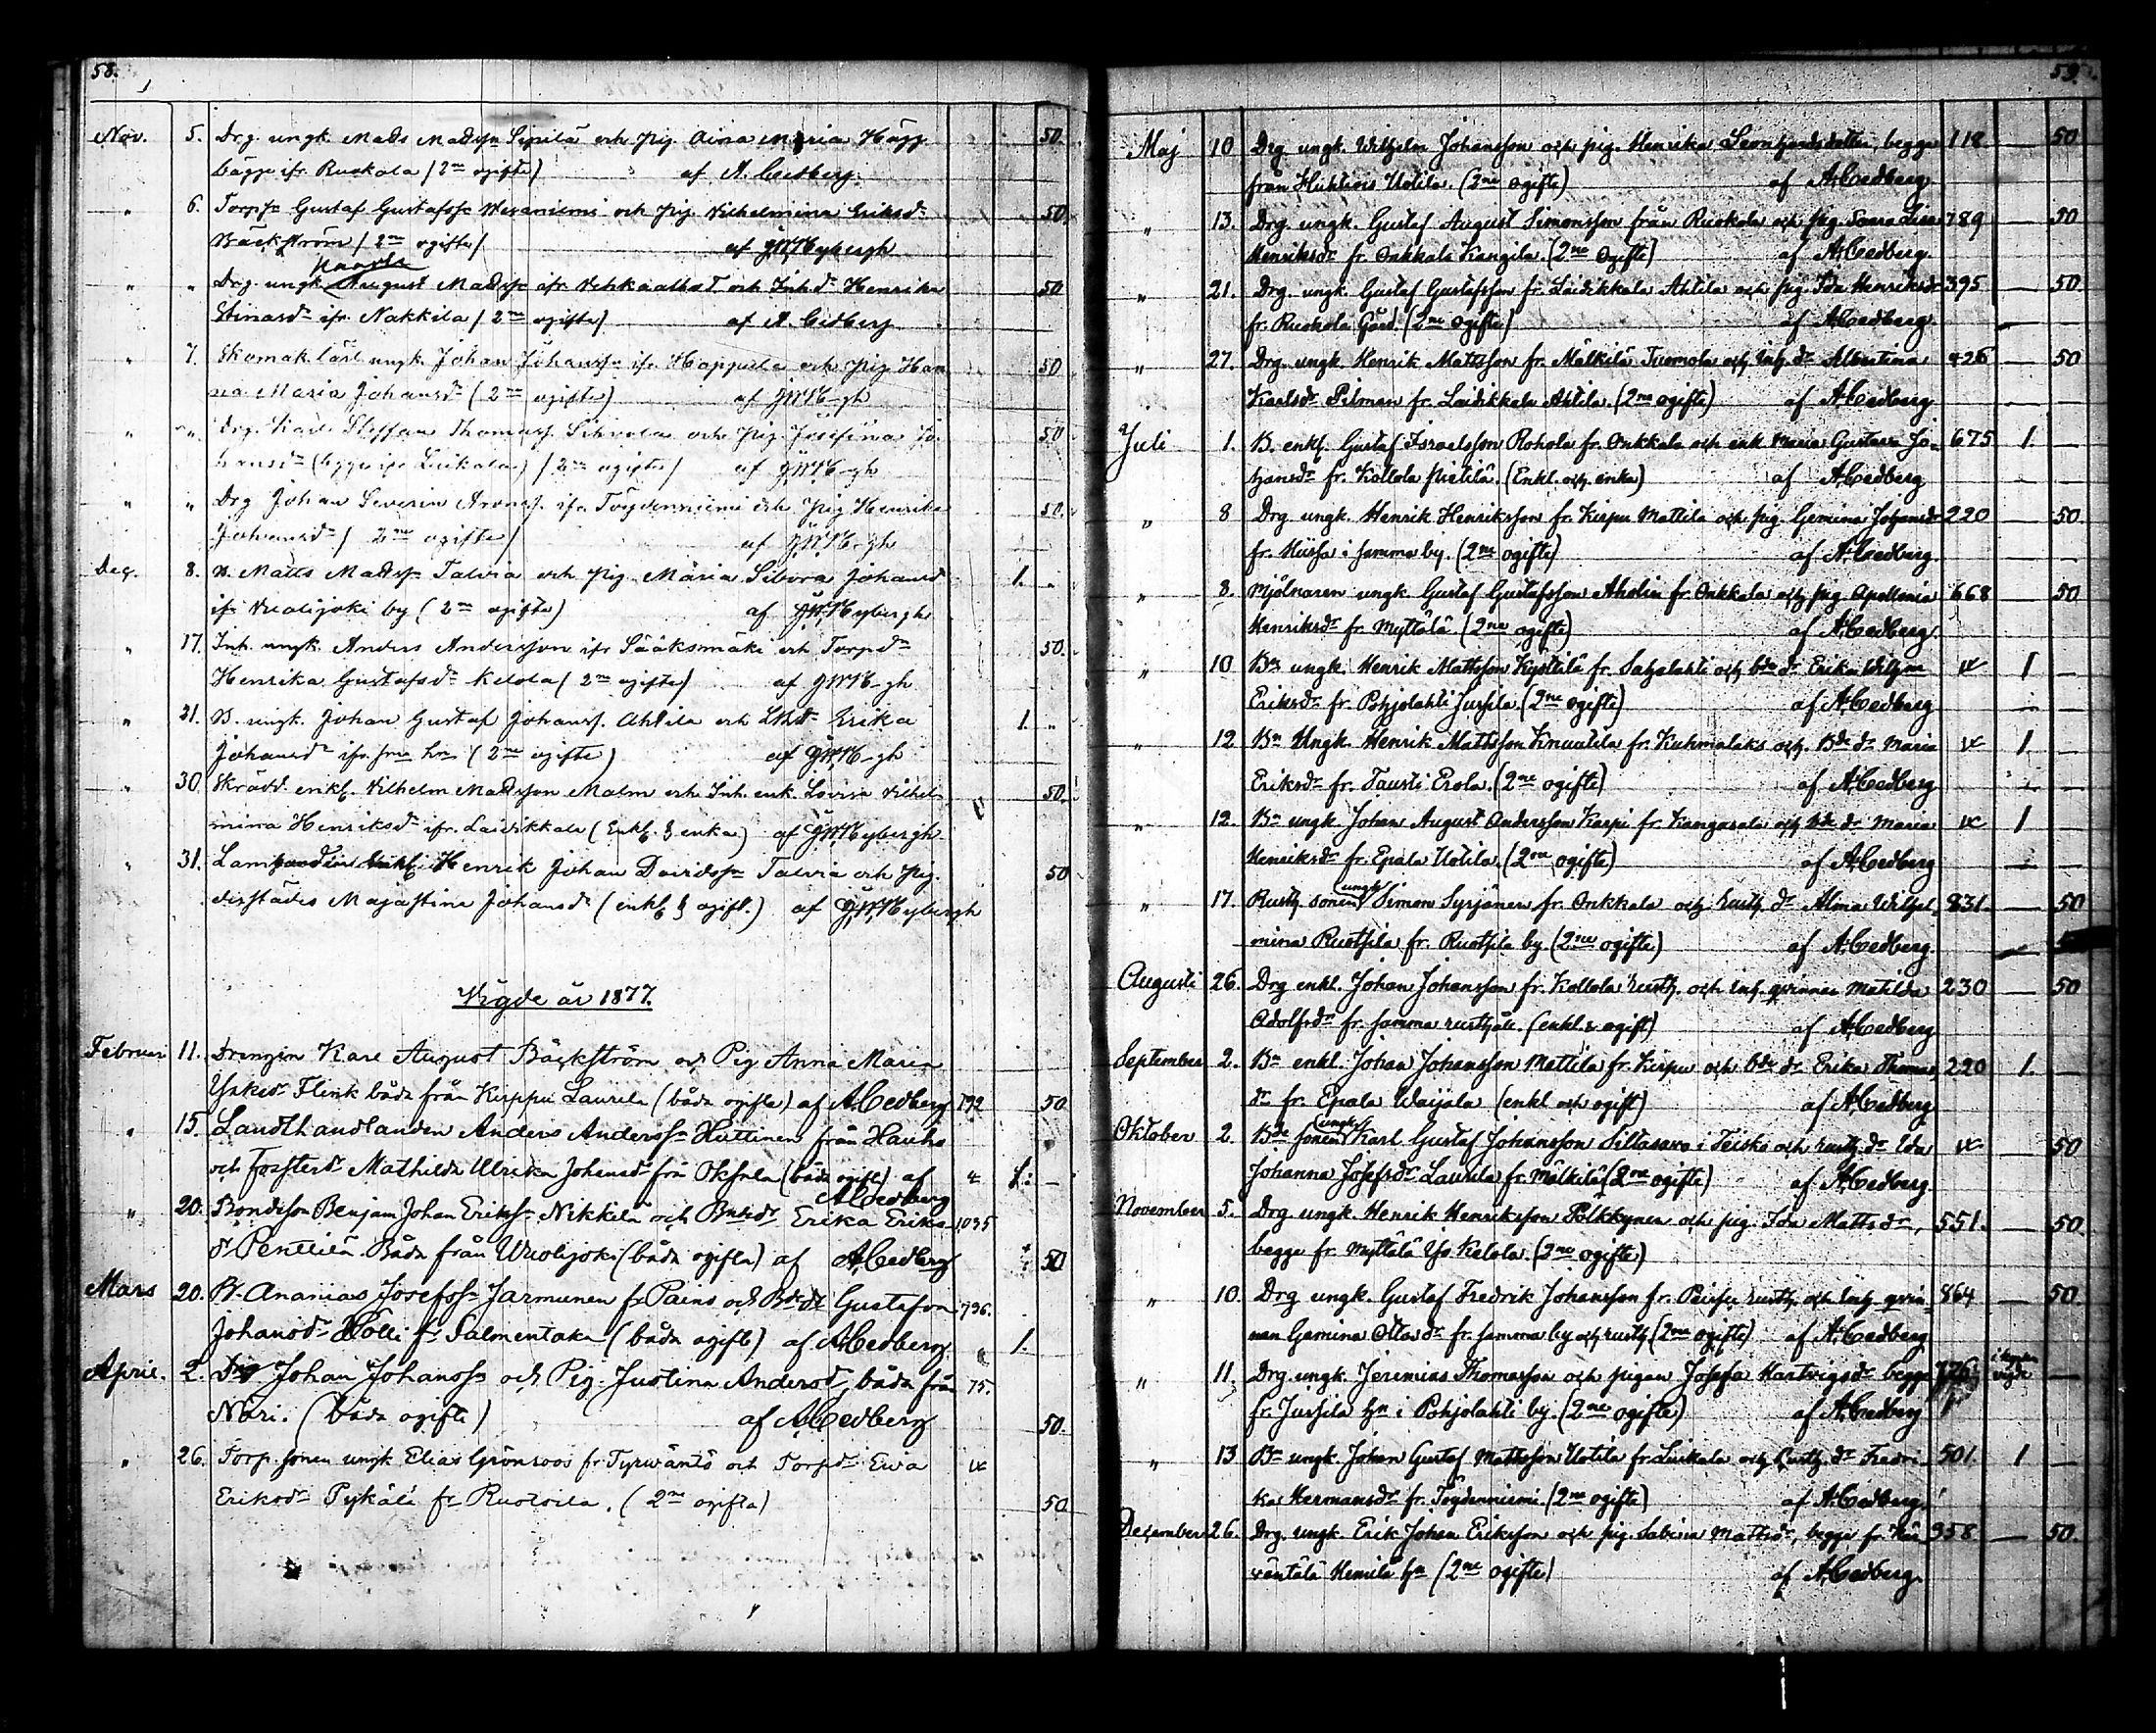 58.
Nov. 5. Drg. ungk. Mats Madsn Sipilä och Pig. Aina Maria Hägg 50.
bägge ifr. Ruokola (2ne ogifte) af A. Cedberg
" 6. Torpsn Gustaf Gustafssn och Pig. Vilhelmina Eriksdr 50.
Bäckström (2ne ogifte) af G.W. Hybergh
" " Drg. ungk. August Madsn ifr. och Inhdr Henrika 50
Stinasdr ifr. Nakkila (2ne ogifte) af A. Cedberg
" 7. Skomak. lärl. ungk. Johan Johanssn ifr. Hoppula och Pig Han 50
na Maria Johansdr (2ne ogifte) af G.W.H-gh
" " Drg. Karl Steffan Thomass. Sihvola och Pig. Josefina Jo- 50
hansdr (begge ifr Luikala) (2ne ogifte) af G.W.H-gh
" " Drg Johan Severin Arons. ifr. Toydenniemi och Pig Henrika 50.
Johansdr (2ne ogifte) af G.W.H-gh
Dec. 8. B. Matts Madsn Talvia och Pig. Maria Johansd 1.
ifr Vuolijoki by (2ne ogifte) af G.W. Hybergh
" 17. Inh. ungk. Anders Andersson ifr Sääksmäki och Torpdr 50.
Henrika Gustafsdr Kelola (2ne ogifte) af G.W.H-gh
" 21. B. ungk. Johan Gustaf Johanss. Ahtila och Erika 1. "
Johansdr ifr. sma hn (2ne ogifte) af G.W.H-gh
" 30 Skrädd. enkl. Vilhelm Madsson Malm och Inh. enk. Lovisa Vilhel 50.
mina Henriksdr ifr. Laidikkala (Enkl. & enka) af G.W. Hybergh
" 31. Henrik Johan Davidssn Talvia och Pig. 50
dersstädes Majastina Johansdr (enkl. & ogift.) af G.W. Hybergh
Vigde år 1877.
Februari 11. Drengen Karl August Bäckström och Pig Anna Maria
Flink båda från Kirppu Laurila (båda ogifte) af A. Cedberg 192 50
" 15. Landthandlanden Anders Anderssn Huttinen från Hauho
och Fosterdr Mathilda Ulrika Johansdr frn (båda ogift) af 1. —
A. Cedberg
" 20. Bondeson Benjam Johan Erikssn Nikkilä och Erika Eriks 1035
dr Penttilä. Båda från Wuolijoki (båda ogifta) af A. Cedberg 50
Mars 20. B. Ananias Josefssn Jarmunen fr Paino och Bdedr Gustafva 796.
Johansdr Kolli fr Salmentaka (båda ogifte) af A. Cedberg 1.
April. 2. Drg Johan Johanssn och Pig. Justina Andersd, båda från 75.
Nari. (båda ogifte) af A. Cedberg 50.
" 26. Torp. sonen ungk Elias Grönroos fr Tyrwäntö och Torpdr Ewa
Eriksdr Pykälä fr Ruotsila. (2ne ogifta) 50
59.
Maj 10 Drg. ungk. Wilhelm Johansson och pig. Henrika Leonhardsdotter, begge 118 50
från Huhtiois Uotila. (2ne ogifte) af A. Cedberg
" 13. Drg. ungk. Gustaf August Simonsson från Ruokola och Pig Saara Lisa 789 — 50
Henriksdr fr. Onkkala Kangila. (2ne Ogifte) af A. Cedberg.
" 21. Drg. ungk. Gustaf Gustafsson fr. Laidikkala Ahtila och pig. Ida Henriksdr 395 — 50
fr. Ruokola Gård. (2ne ogifte) af A. Cedberg.
" 27. Drg. ungk. Henrik Mattsson fr. Mälkilä Tuomola och Inh. dr Albertina 426 — 50
Karlsdr Pilman fr. Laidikkala Ahtila. (2ne ogifte) af A. Cedberg
Juli 1. B. enkl. Gustaf Israelsson Rohola fr. Onkkala och enk. Maria Gustava Jo- 675 1. —
hansdr fr. Kollola Pietilä. (Enkl. och enka) af A. Cedberg
" 8 Drg ungk. Henrik Henriksson fr. Kirpu Mattila och pig. Gemina Johansdr 220 50
fr. Hiissa i samma by. (2ne ogifte) af A. Cedberg.
" 8. Mjölnaren ungk. Gustaf Gustafsson Aholin fr. Onkkala och pig Apollonia 668 50
Henriksdr fr. Myttälä (2ne ogifte) af A. Cedberg
" 10 Bn ungk. Henrik Mattsson Kyöttilä fr. Sahalahti och bde dr Erika Wilhm 1 —
Eriksdr fr. Pohjolahti Jussila. (2ne ogifte) af A. Cedberg
" 12 Bn Ungk. Henrik Mattsson Knuutila fr. Kuhmalaks och Bde dr Maria 1. —
Eriksdr fr. Tausti Erola. (2ne ogifte) af A. Cedberg
" 12. Bn ungk. Johan August Andersson Kaspi fr. Kangasala och bde dr Maria 1 —
Henriksdr fr. Epala Uotila. (2ne ogifte) af A. Cedberg
" 17. Rusth. sonen ungk Simon Syrjänen fr. Onkkala och rusth. dr Alma Wilhel 831. — 50
mina Ruotsila fr. Ruotsila by. (2ne ogifte) af A. Cedberg.
Augusti 26. Drg enkl. Johan Johansson fr. Kollola rusth. och inh. qvinnan Matilda 230 — 50
Adolfsdr fr. samma rusthåll. (enkl. & ogift) af A. Cedberg
September 2. Bn enkl. Johan Johansson Mattila fr. Kirpu och bde dr Erika Thomas 220 1. —
dr fr. Epala Waijala (enkl och ogift) af A. Cedberg
Oktober 2. Bde sonen ungk Karl Gustaf Johansson Sillasawo i Teisko och rusth. dr Ida 50
Johanna Josefsdr Laurila fr. Mälkilä (2ne ogifte) af A. Cedberg.
November 5. Drg. ungk. Henrik Henriksson Pölkkynen och pig. Ida Mattsdr, 551. — 50.
begge fr. Myttälä Yli Kelola. (2ne ogifte)
" 10. Drg ungk. Gustaf Fredrik Johansson fr. rusth. och inh. qvin 864 — 50.
nan Gemina Ottosdr fr. samma by och rusth. (2ne ogifte) af A. Cedberg
" 11. Drg. ungk. Jeremias Thomasson och pigan Josefa Hartvigsdr begge 726 vigde —
fr. Jussila hn i Pohjolahti by. (2ne ogifte) af A. Cedberg
" 13 Bn ungk. Johan Gustaf Mattsson Uotila fr. Luikala och rusth. dr Fredri- 501. 1 —
ka Hermansdr fr. Toydenniemi. (2ne ogifte) af A. Cedberg.
December 26. Drg. ungk. Erik Johan Eriksson och pig. Sabina Mattsdr, begge fr. Kai 958 — 50.
räntälä Hemilä hn (2ne ogifte) af A. Cedberg.